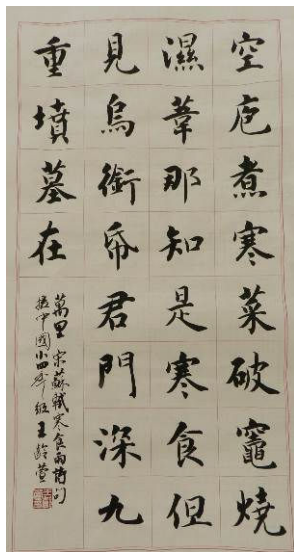 空庖煮寒菜破竈燒
濕葦那知是寒食但
見烏銜帋君門深九
重墳墓在
萬里 宋蘇軾寒食雨詩句
中國小四年級王萱